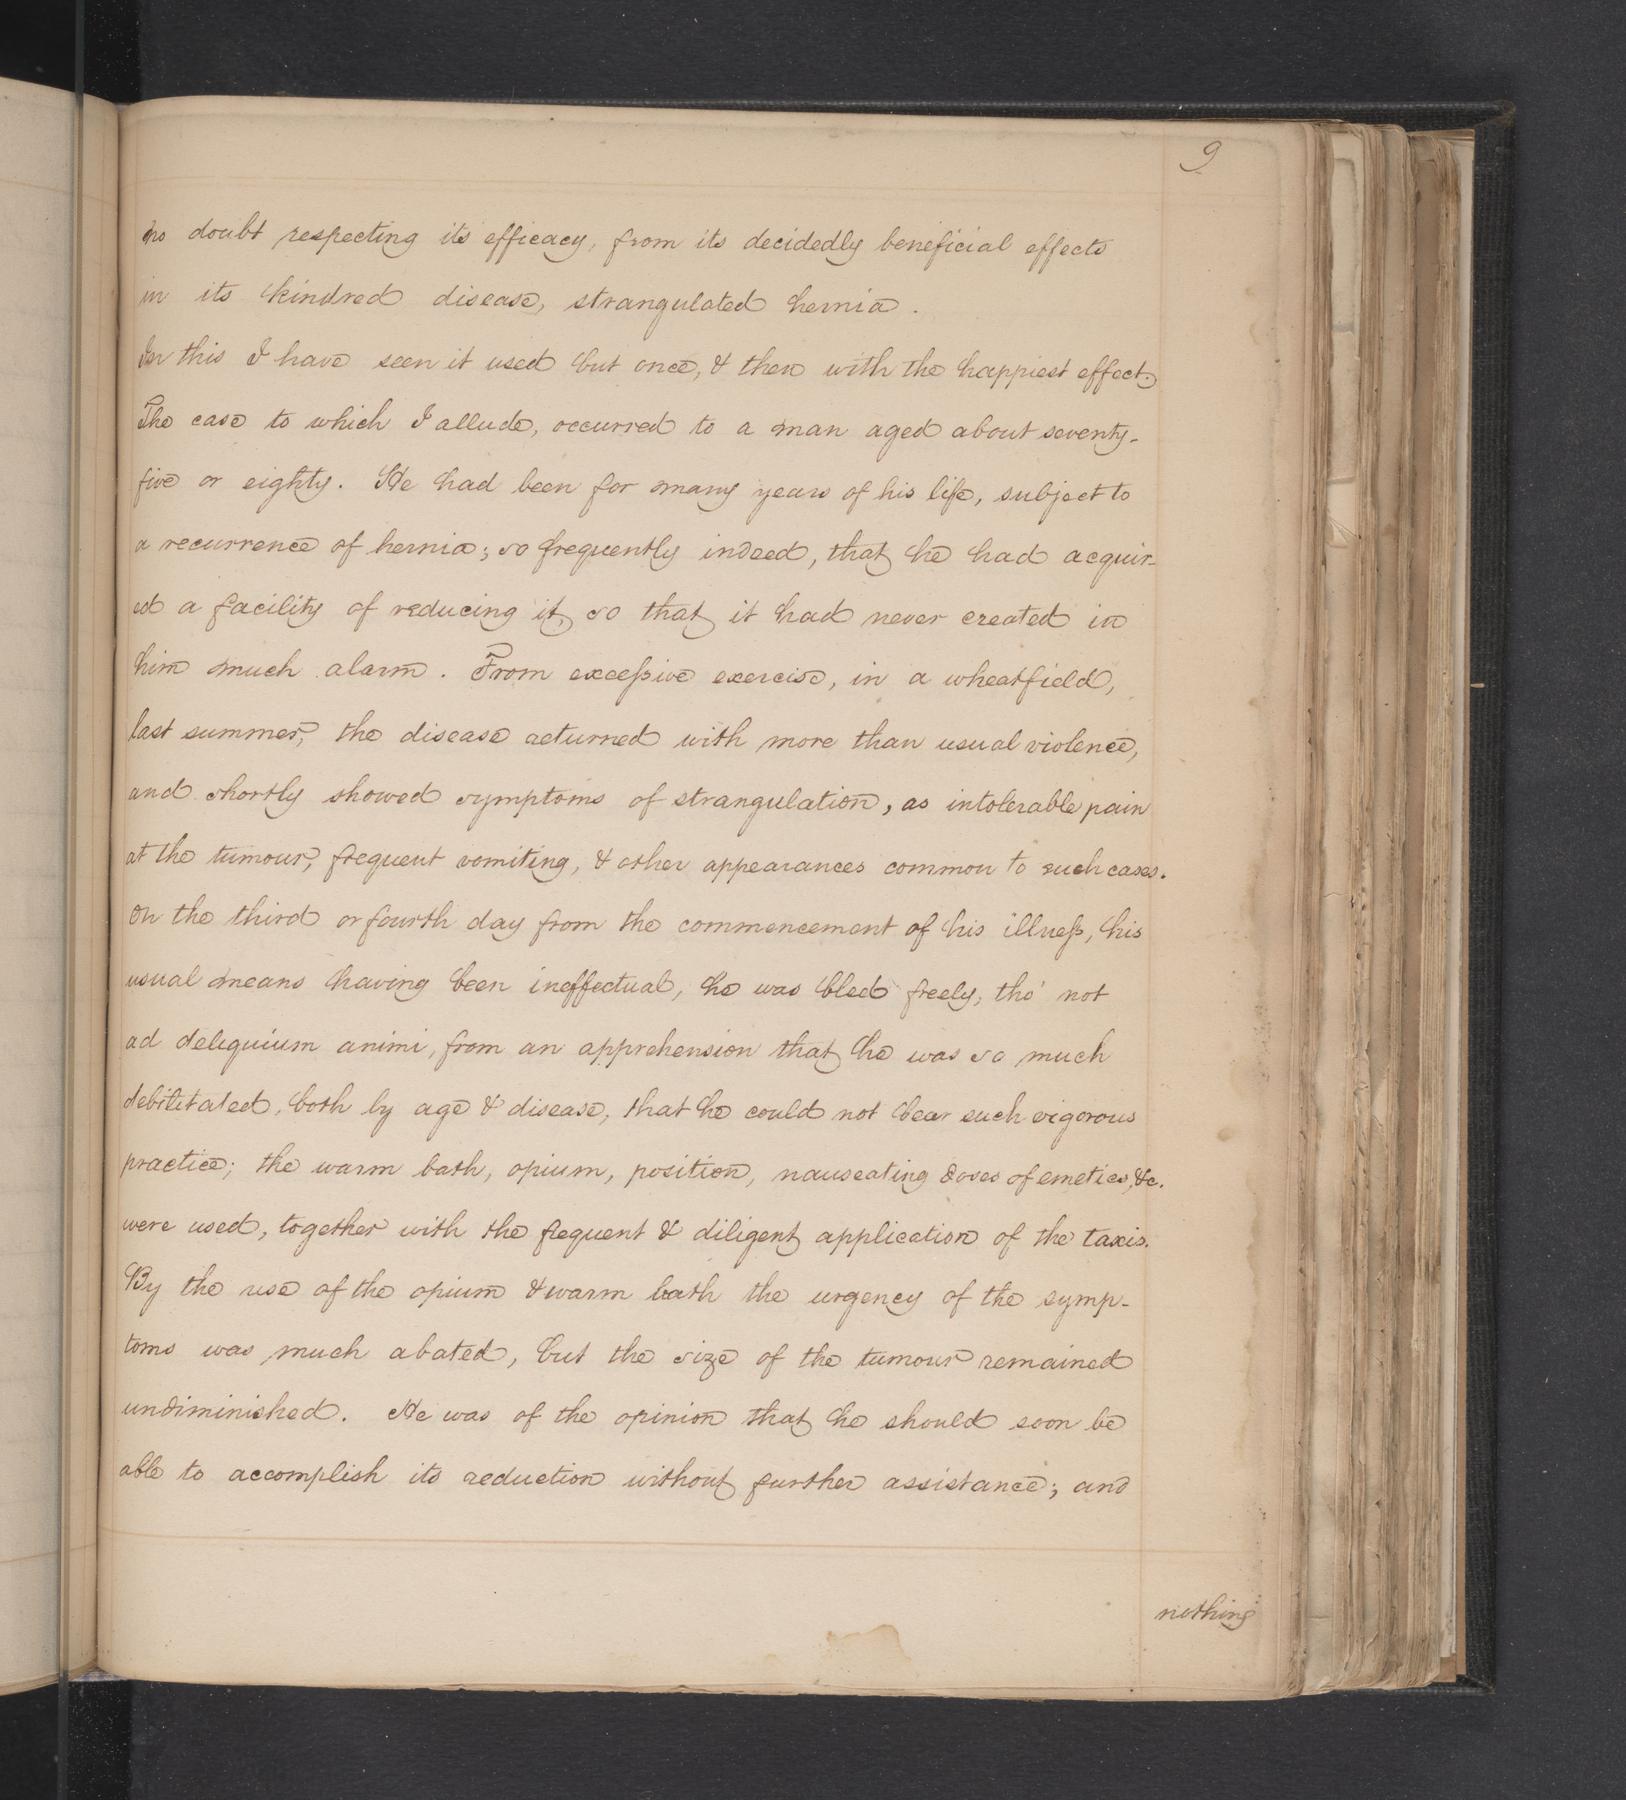 9
no doubt respecting its efficacy, from its decidedly beneficial effects
in its kindred disease, strangulated hernia.
In this I have seen it used but once, & then with the happiest effect.
The case to which I allude, occurred to a man aged about seventy-
five or eighty. He had been for many years of his life, subject to
a recurrence of hernia; so frequently indeed, that he had acquir-
ed a facility of reducing it, so that it had never created in
him much alarm. From excessive exercise, in a wheatfield,
last summer, the disease returned with more than usual violence,
and shortly showed symptoms of strangulation, as intolerable pain
at the tumour, frequent vomiting, & other appearances common to such cases.
On the third or fourth day from the commencement of his illness, his
usual means having been ineffectual, he was bled freely, tho' not
ad deliquium animi, from an apprehension that he was so much
debilitated, both by age & disease, that he could not bear such vigorous
practice; the warm bath, opium, position, nauseating doses of emetics, &c.
were used, together with the frequent & diligent application of the taxis.
By the use of the opium & warm bath the urgency of the symp-
toms was much abated, but the size of the tumour remained
undiminished. He was of the opinion that he should soon be
able to accomplish its reduction without further assistance; and
nothing